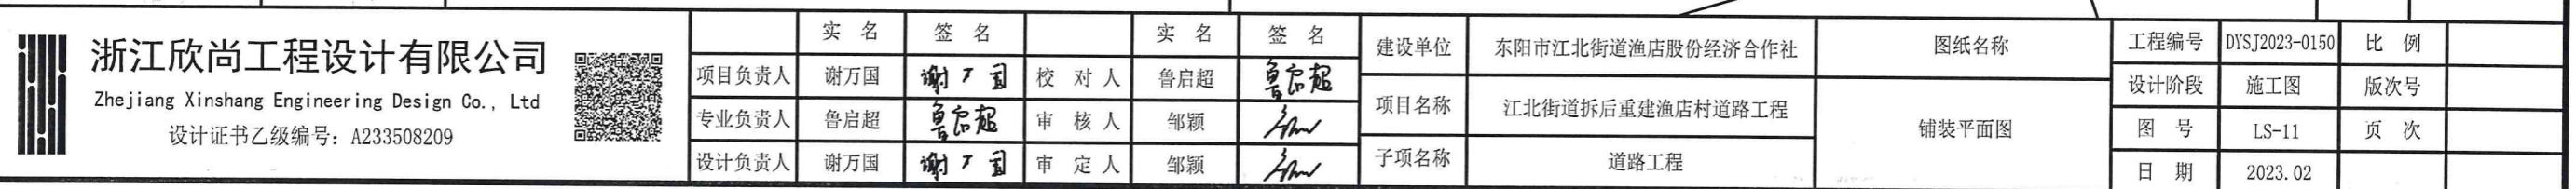 浙江欣尚工程设计有限公司
Zhejiang Xinshang Engineering Design Co., Ltd
设计证书乙级编号: A233508209
实 名 签 名 实 名 签 名
项目负责人 谢万国 谢万国 校 对 人 鲁启超 鲁启超
专业负责人 鲁启超 鲁启超 审 核 人 邹颖
设计负责人 谢万国 谢万国 审 定 人 邹颖
建设单位 东阳市江北街道渔店股份经济合作社
项目名称 江北街道拆后重建渔店村道路工程
子项名称 道路工程
图纸名称
铺装平面图
工程编号 DYSJ2023-0150 比 例
设计阶段 施工图 版次号
图 号 LS-11 页 次
日 期 2023.02